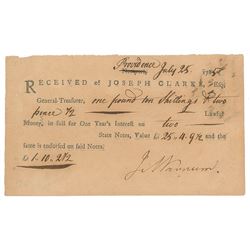 Providence
Newport, July 25 178
RECEIVED of JOSEPH CLARKE, Esq;
General-Treasurer, one pound ten Shillings & two
pence 1/2 Lawful
Money, in full for One Year's Interest on two
State Notes, Value £ 25.4.9½ and the
same is endorsed on said Notes.
£ 1.10.2½
J M Varnum